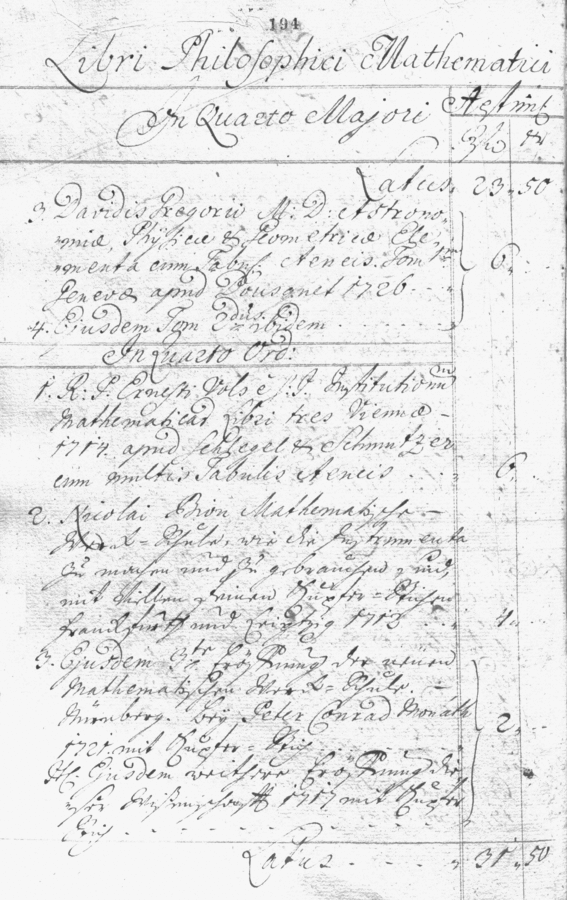 194
Libri Philosophici Mathematici
In Quarto Majori Aestim̄
Latus. 23 „ 50
3. Davidis Gregorii M: D: Astrono-
miæ, Physicæ & Geometricæ Ele-
menta cum Tabul. Aeneis. Tom 1mus
Genevæ apud Bousquet 1726 6 „
4. Ejusdem Tom 2dus ibidem
In Quarto Ord:
1. R: P: Ernesti Vols è S: J: Institutionū
Mathematicar Libri tres Viennæ –
1714. apud Schlegel & Schmutzer
cum multis Tabulis Aeneis 6 „
2. Nicolai Bion Mathematische –
Werk=Schule, wie die Instrumenta
zu machen und zu gebrauchen sind,
mit Villen feinen Kupfer=Stichen
Franckfurtt und Leipzig 1713 4 „
3. Ejusdem 3te Eröffnung der neuen
Mathematischen Werk=Schule. –
Nürnberg. bey Peter Conrad Monath
1721. mit Kupfer=Stich 2 „
4. Ejusdem weithere Eröffnung die-
ser Wissenschafft 1717 mit Kupfer
Stich
Latus „ 31 „ 50